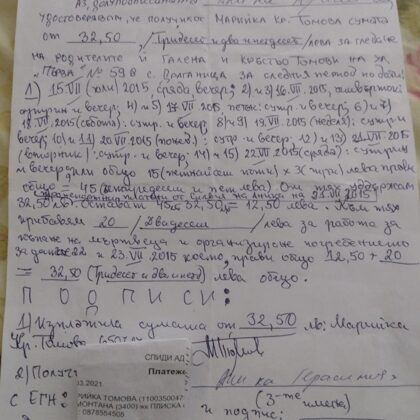 Аз, долуподписаната
удостоверявам, че получих от МАРИЙКА КР. ТОМОВА сумата
от 32,50 /Тридесет и два и петдесет/ лева за гледане
на родителите ѝ Галена и Кръстьо Томови на ул.
"Първа" № 59 в с. за следния период по дати:
1) 15.VII (юли) 2015, сряда, вечер; 2) и 3) 16.VII. 2015, четвъртък:
сутрин и вечер; 4) и 5) 17.VII 2015 петък: сутр. и вечер; 6) и 7)
18.VII.2015 (събота): сутр. и вечер 8) и 9) 19.VII.2015 (неделя): сутр. и
вечер; 10) и 11) 20.VII.2015 (понед.): сутр. и вечер: 12) и 13) 21.VII.2015
(вторник): сутр. и вечер; 14) и 15) 22.VII.2015 (сряда): сутрин
и вечер или общо 15 (петнайсет пъти) x 3 (три) лева прави
общо = 45 (четиридесет и пет лева) От тях удържам
на 23.VII.2015
32,50 лв. Остават 45 - 32,50 = 12,50 лева. Към тях
прибавям 20 /Двадесет/ лева за работа за
къпане на мъртвеца и организиране погребението
за дати: 22 и 23.VII.2015 което прави общо 12,50 + 20
= 32,50 (Тридесет и два и пет) лева общо.
П О Д П И С И :
1) Изплатила сумата от 32,50 лв: Марийка
Кр. Томова
СПИДИ АД
2) Получ
.03.2021
Платеж
с ЕГН:
РИЙКА ТОМОВА (11003500
МОНТАНА (3400) жк ПЛИСКА
0878554505
(3-те имена)
и подпис: